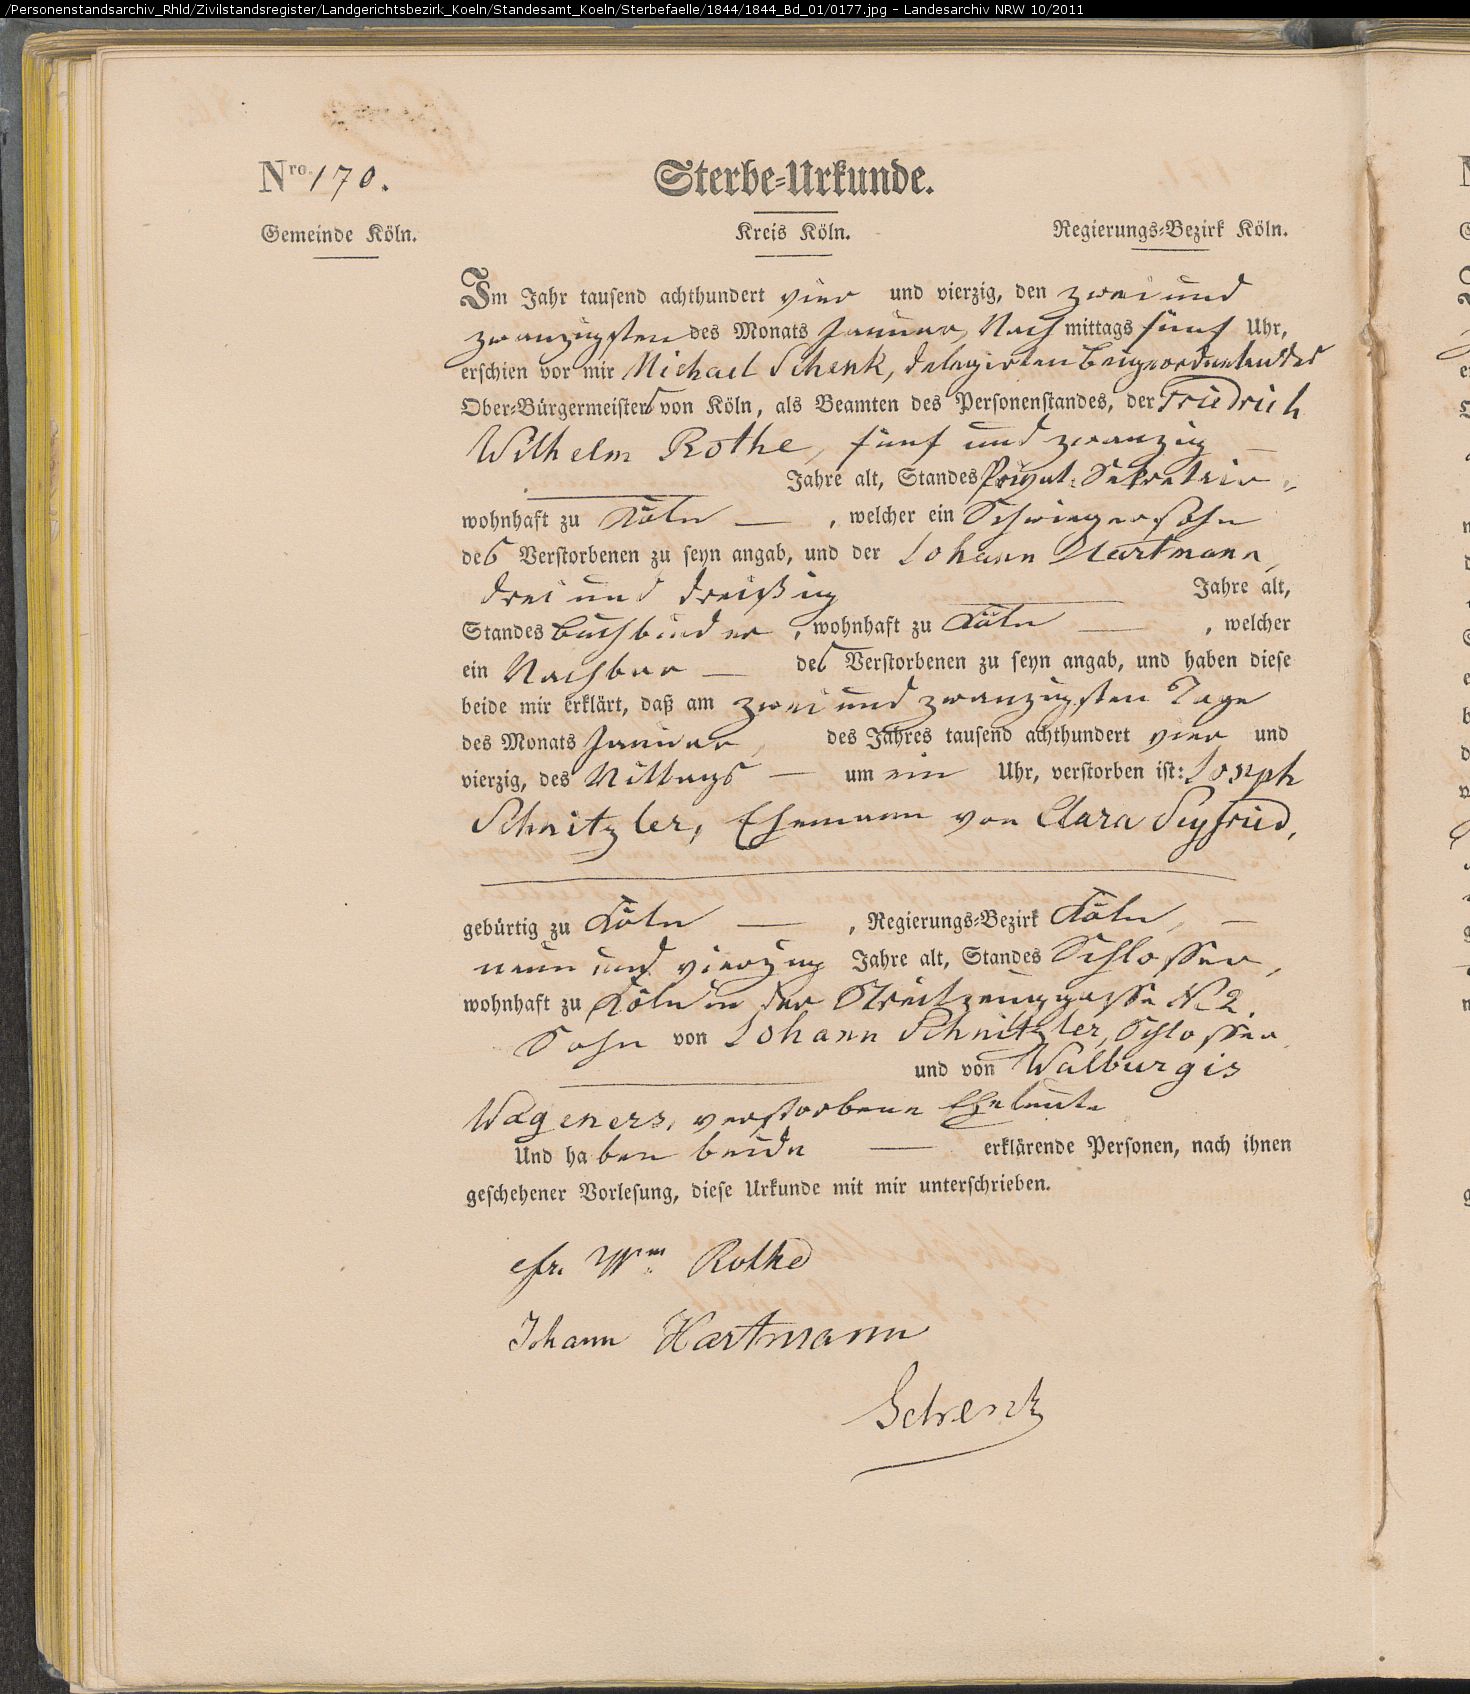 /Personenstandsarchiv_Rhld/Zivilstandsregister/Landgerichtsbezirk_Koeln/Standesamt_Koeln/Sterbefaelle/1844/1844_Bd_01/0177.jpg - Landesarchiv NRW 10/2011
Nro. 170. Sterbe-Urkunde.
Gemeinde Köln. Kreis Köln. Regierungs-Bezirk Köln.
Im Jahr tausend achthundert vier und vierzig, den zwei und
zwanzigsten des Monats Januar, Nachmittags fünf Uhr,
erschien vor mir Michael Schenk, delegirten Beigeordneten des
Ober-Bürgermeisters von Köln, als Beamten des Personenstandes, der Friedrich
Wilhelm Rothe, fünf und zwanzig
Jahre alt, Standes Privat-Sekretair,
wohnhaft zu Köln —, welcher ein Schwiegersohn
des Verstorbenen zu seyn angab, und der Johann Hartmann,
drei und dreißig Jahre alt,
Standes Buchbinder, wohnhaft zu Köln —, welcher
ein Nachbar — des Verstorbenen zu seyn angab, und haben diese
beide mir erklärt, daß am zwei und zwanzigsten Tage
des Monats Januar, des Jahres tausend achthundert vier und
vierzig, des Mittags — um ein Uhr, verstorben ist: Joseph
Schnitzler, Ehemann von Clara Seyfried,
gebürtig zu Köln —, Regierungs-Bezirk Köln, —
neun und vierzig Jahre alt, Standes Schlosser,
wohnhaft zu Köln in der Streitzeuggasse No 2.
Sohn von Johann Schnitzler, Schlosser
und von Walburgis
Wageners, verstorbene Eheleute
Und haben beide — erklärende Personen, nach ihnen
geschehener Vorlesung, diese Urkunde mit mir unterschrieben.
Fr. Wm Rothe
Johann Hartmann
Schenk